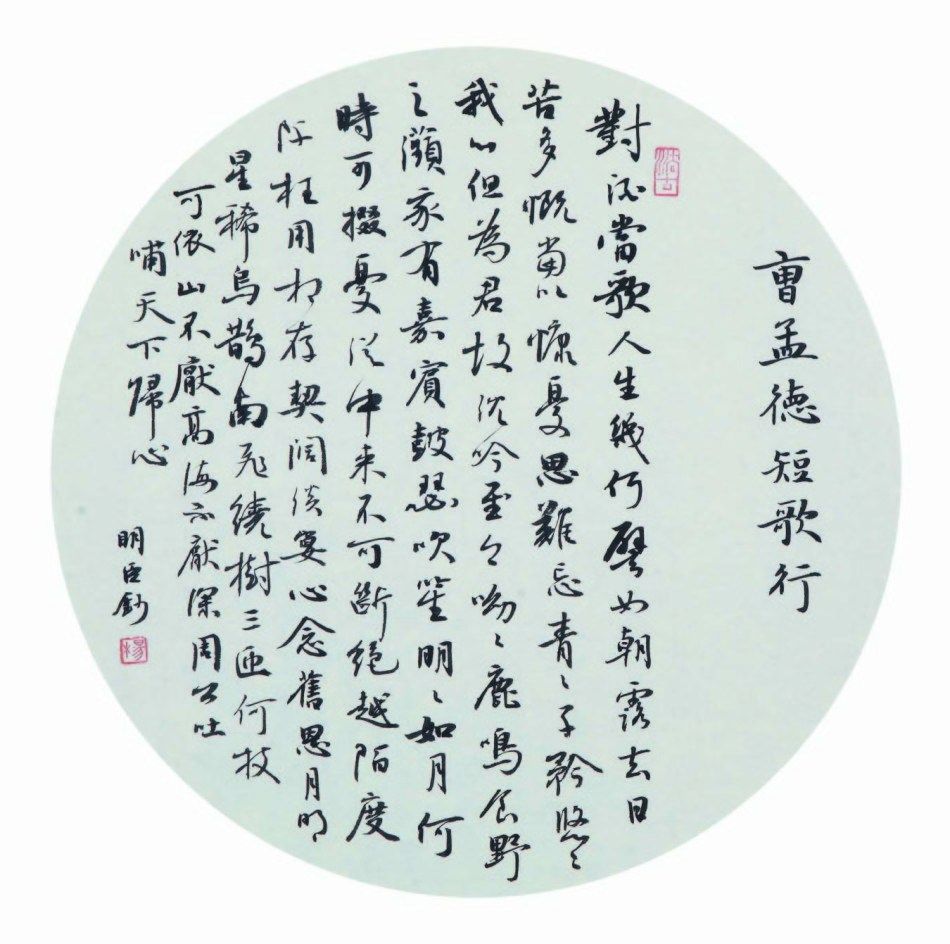 曹孟德短歌行
對酒當歌人生幾何譬如朝露去日
苦多慨當以慷憂思難忘青〻子衿悠〻
我心但為君故沈吟至今呦〻鹿鳴食野
之瀕我有嘉賓鼓瑟吹笙明〻如月何
時可掇憂從中來不可斷絕越陌度
阡枉用相存契闊談宴心念舊恩月明
星稀烏鵲南飛繞樹三匝何枝
可依山不厭高海不厭深周公吐
哺天下歸心
明臣鈔
楊